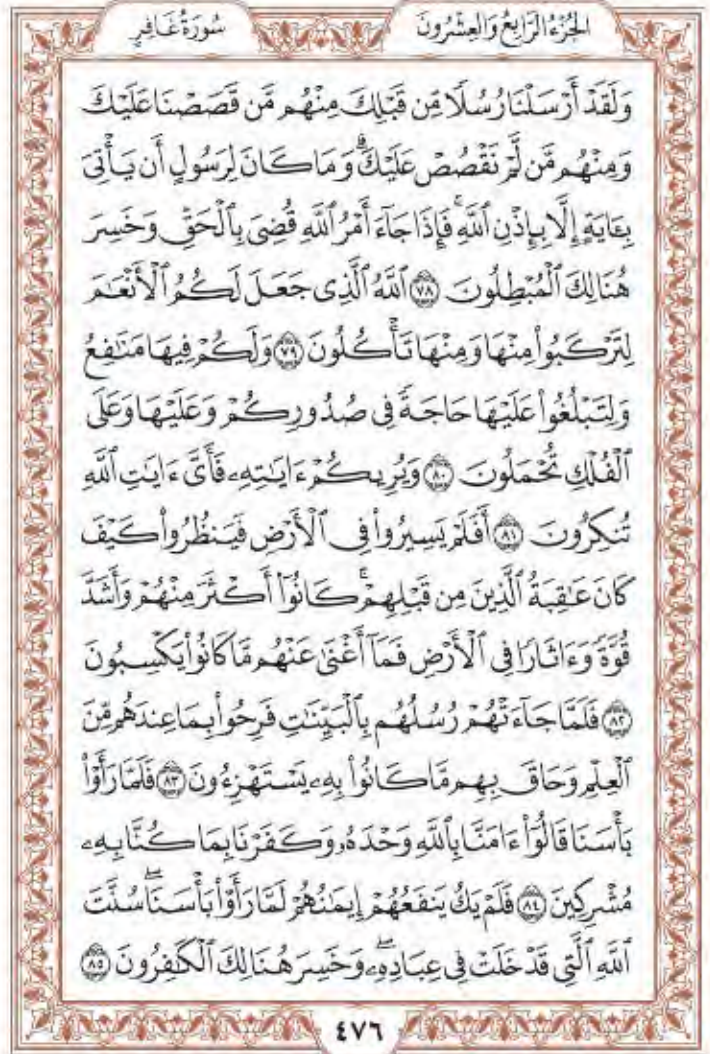 سُورَةُ غَافِرٍ
الجُزْءُ الرَّابِعُ وَالعِشْرُونَ
وَلَقَدْ أَرْسَلْنَا رُسُلًا مِّن قَبْلِكَ مِنْهُم مَّن قَصَصْنَا عَلَيْكَ
وَمِنْهُم مَّن لَّمْ نَقْصُصْ عَلَيْكَۗ وَمَا كَانَ لِرَسُولٍ أَن يَأْتِيَ
بِـَٔايَةٍ إِلَّا بِإِذْنِ ٱللَّهِۚ فَإِذَا جَآءَ أَمْرُ ٱللَّهِ قُضِيَ بِٱلْحَقِّ وَخَسِرَ
هُنَالِكَ ٱلْمُبْطِلُونَ ٧٨ ٱللَّهُ ٱلَّذِى جَعَلَ لَكُمُ ٱلْأَنْعَٰمَ
لِتَرْكَبُوا۟ مِنْهَا وَمِنْهَا تَأْكُلُونَ ٧٩ وَلَكُمْ فِيهَا مَنَٰفِعُ
وَلِتَبْلُغُوا۟ عَلَيْهَا حَاجَةً فِى صُدُورِكُمْ وَعَلَيْهَا وَعَلَى
ٱلْفُلْكِ تُحْمَلُونَ ٨٠ وَيُرِيكُمْ ءَايَٰتِهِۦ فَأَىَّ ءَايَٰتِ ٱللَّهِ
تُنكِرُونَ ٨١ أَفَلَمْ يَسِيرُوا۟ فِى ٱلْأَرْضِ فَيَنظُرُوا۟ كَيْفَ
كَانَ عَٰقِبَةُ ٱلَّذِينَ مِن قَبْلِهِمْۚ كَانُوٓا۟ أَكْثَرَ مِنْهُمْ وَأَشَدَّ
قُوَّةً وَءَاثَارًا فِى ٱلْأَرْضِ فَمَآ أَغْنَىٰ عَنْهُم مَّا كَانُوا۟ يَكْسِبُونَ
٨٢ فَلَمَّا جَآءَتْهُمْ رُسُلُهُم بِٱلْبَيِّنَٰتِ فَرِحُوا۟ بِمَا عِندَهُم مِّنَ
ٱلْعِلْمِ وَحَاقَ بِهِم مَّا كَانُوا۟ بِهِۦ يَسْتَهْزِءُونَ ٨٣ فَلَمَّا رَأَوْا۟
بَأْسَنَا قَالُوٓا۟ ءَامَنَّا بِٱللَّهِ وَحْدَهُۥ وَكَفَرْنَا بِمَا كُنَّا بِهِۦ
مُشْرِكِينَ ٨٤ فَلَمْ يَكُ يَنفَعُهُمْ إِيمَٰنُهُمْ لَمَّا رَأَوْا۟ بَأْسَنَاۖ سُنَّتَ
ٱللَّهِ ٱلَّتِى قَدْ خَلَتْ فِى عِبَادِهِۦۖ وَخَسِرَ هُنَالِكَ ٱلْكَٰفِرُونَ ٨٥
٤٧٦